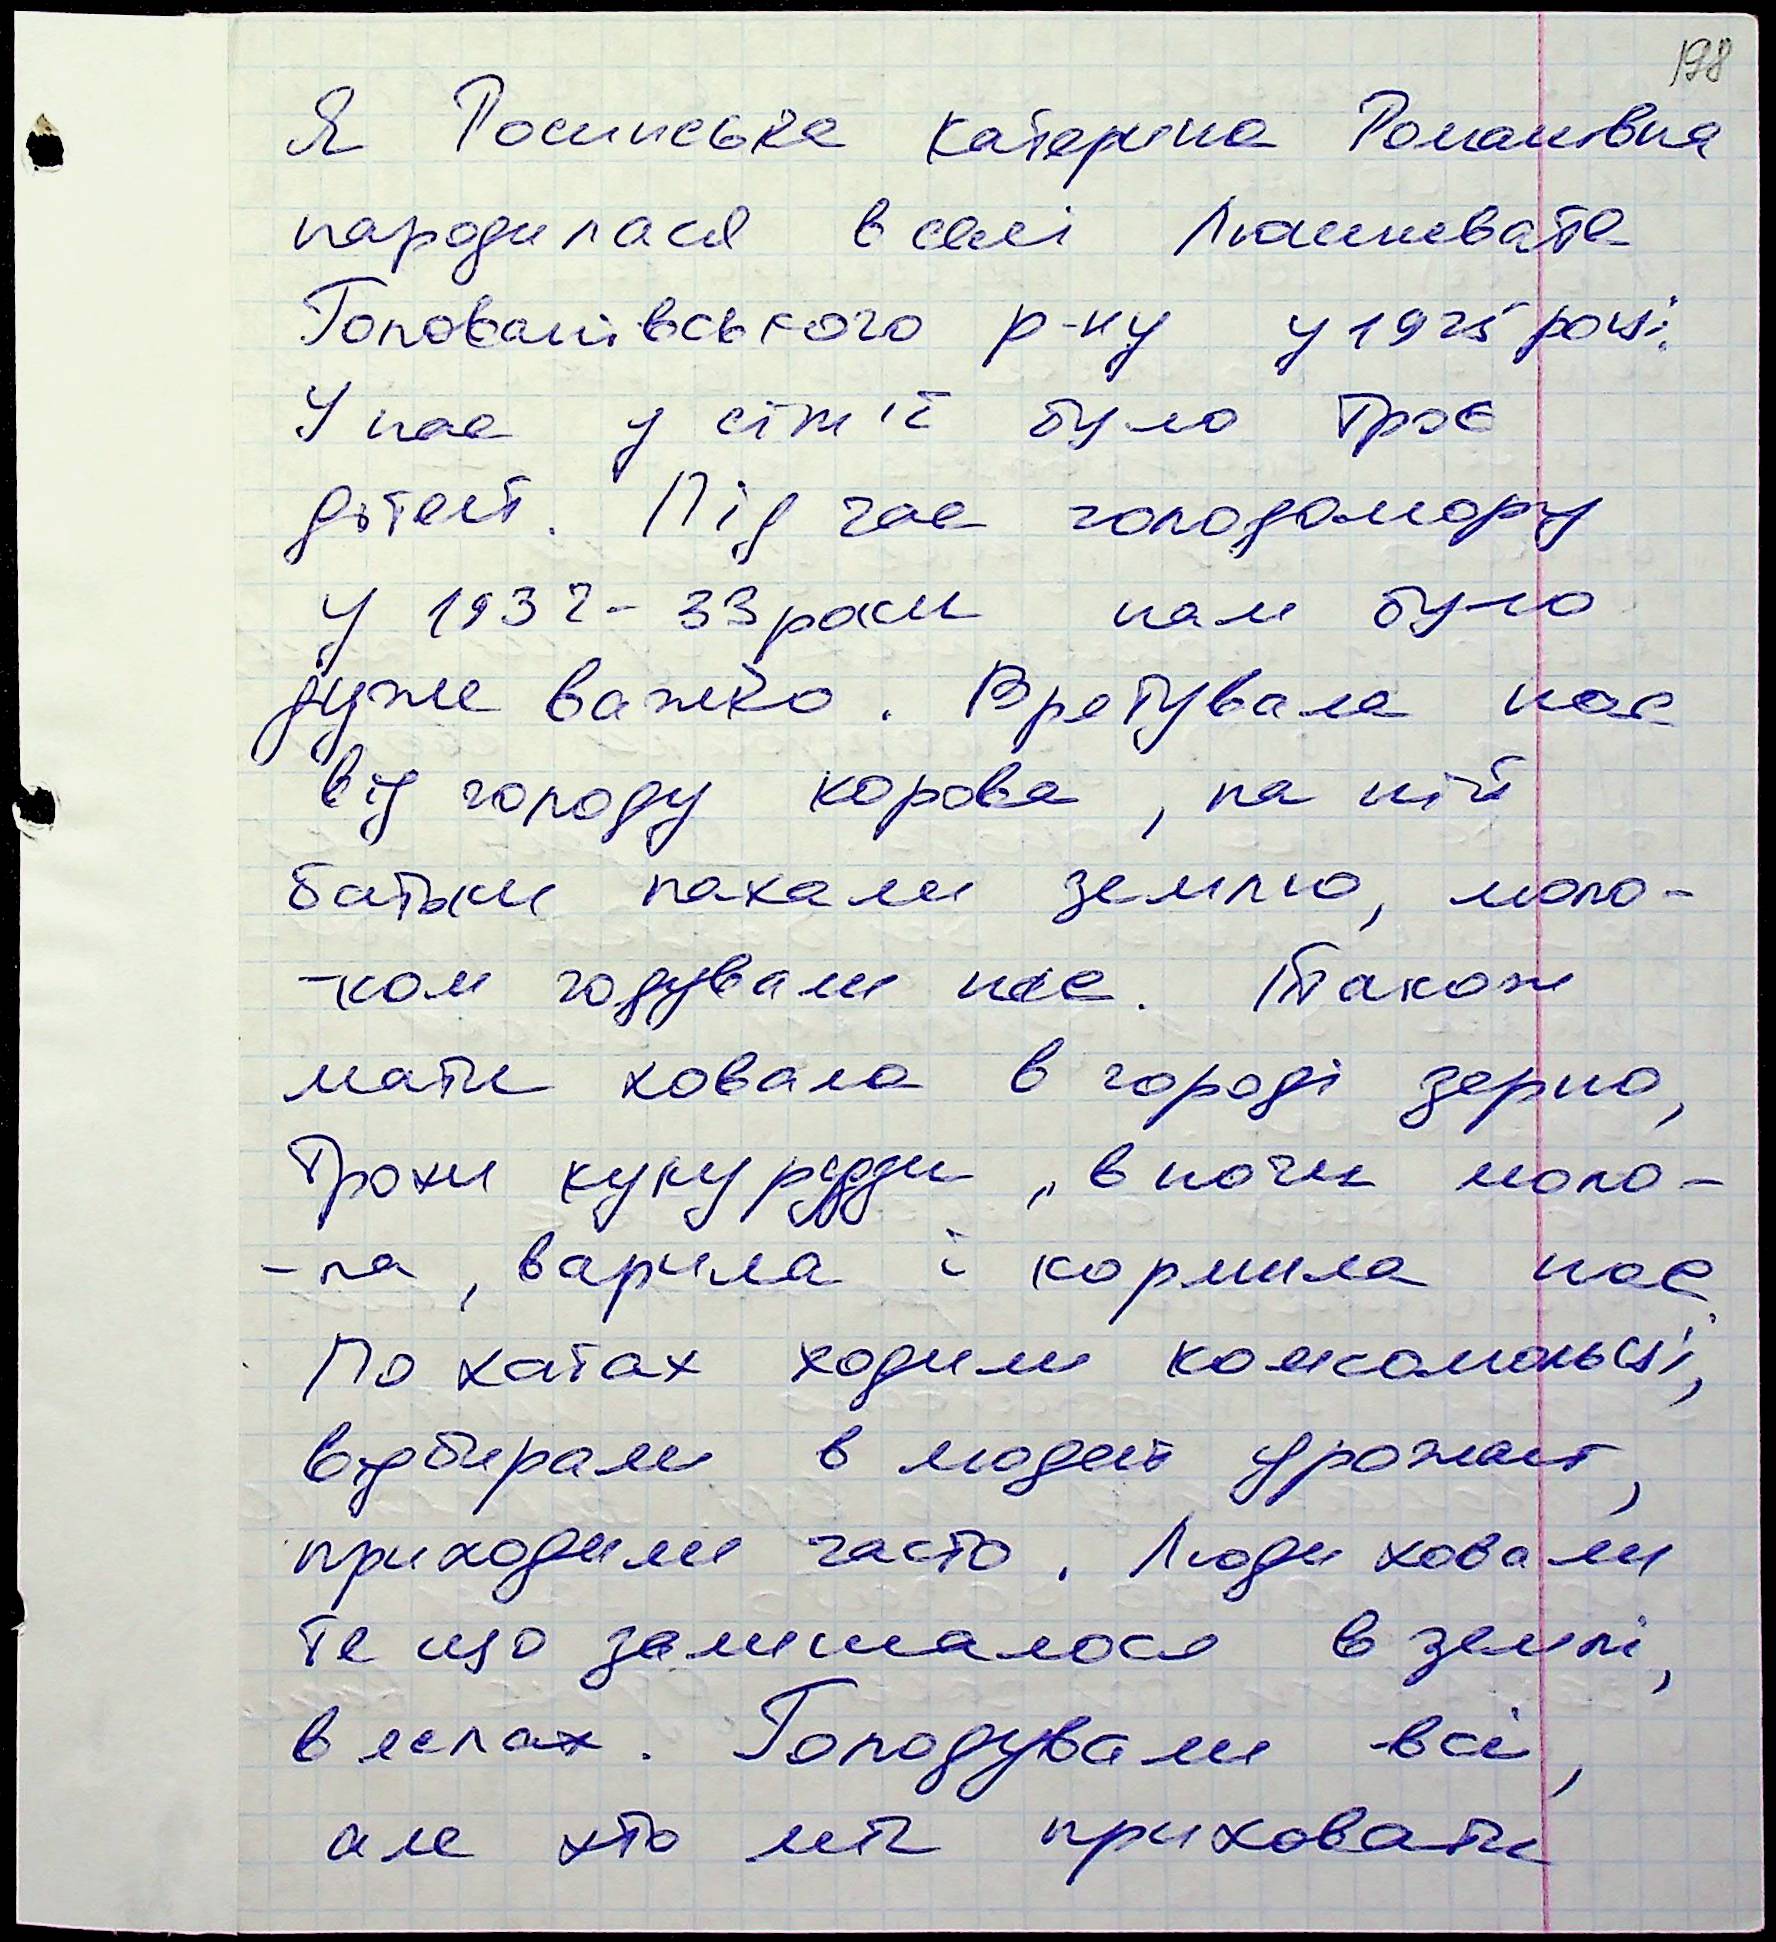 198
Я Росинська Катерина Романівна
народилася в селі Люшнювате
Голованівського р-ну у 1925 році.
У нас у сім'ї було троє
дітей. Під час голодомору
у 1932-33 роки нам було
дуже важко. Врятувала нас
від голоду корова, на ній
батьки пахали землю, моло-
-ком годували нас. Також
мати ховала в городі зерно,
трохи кукурудзи, вночи моло-
-ла, варила і кормила нас.
По хатах ходили комсомольці,
відбирали в людей урожай,
приходили часто. Люди ховали
те що залишалося в землі,
в яслах. Голодували всі,
але хто міг приховати